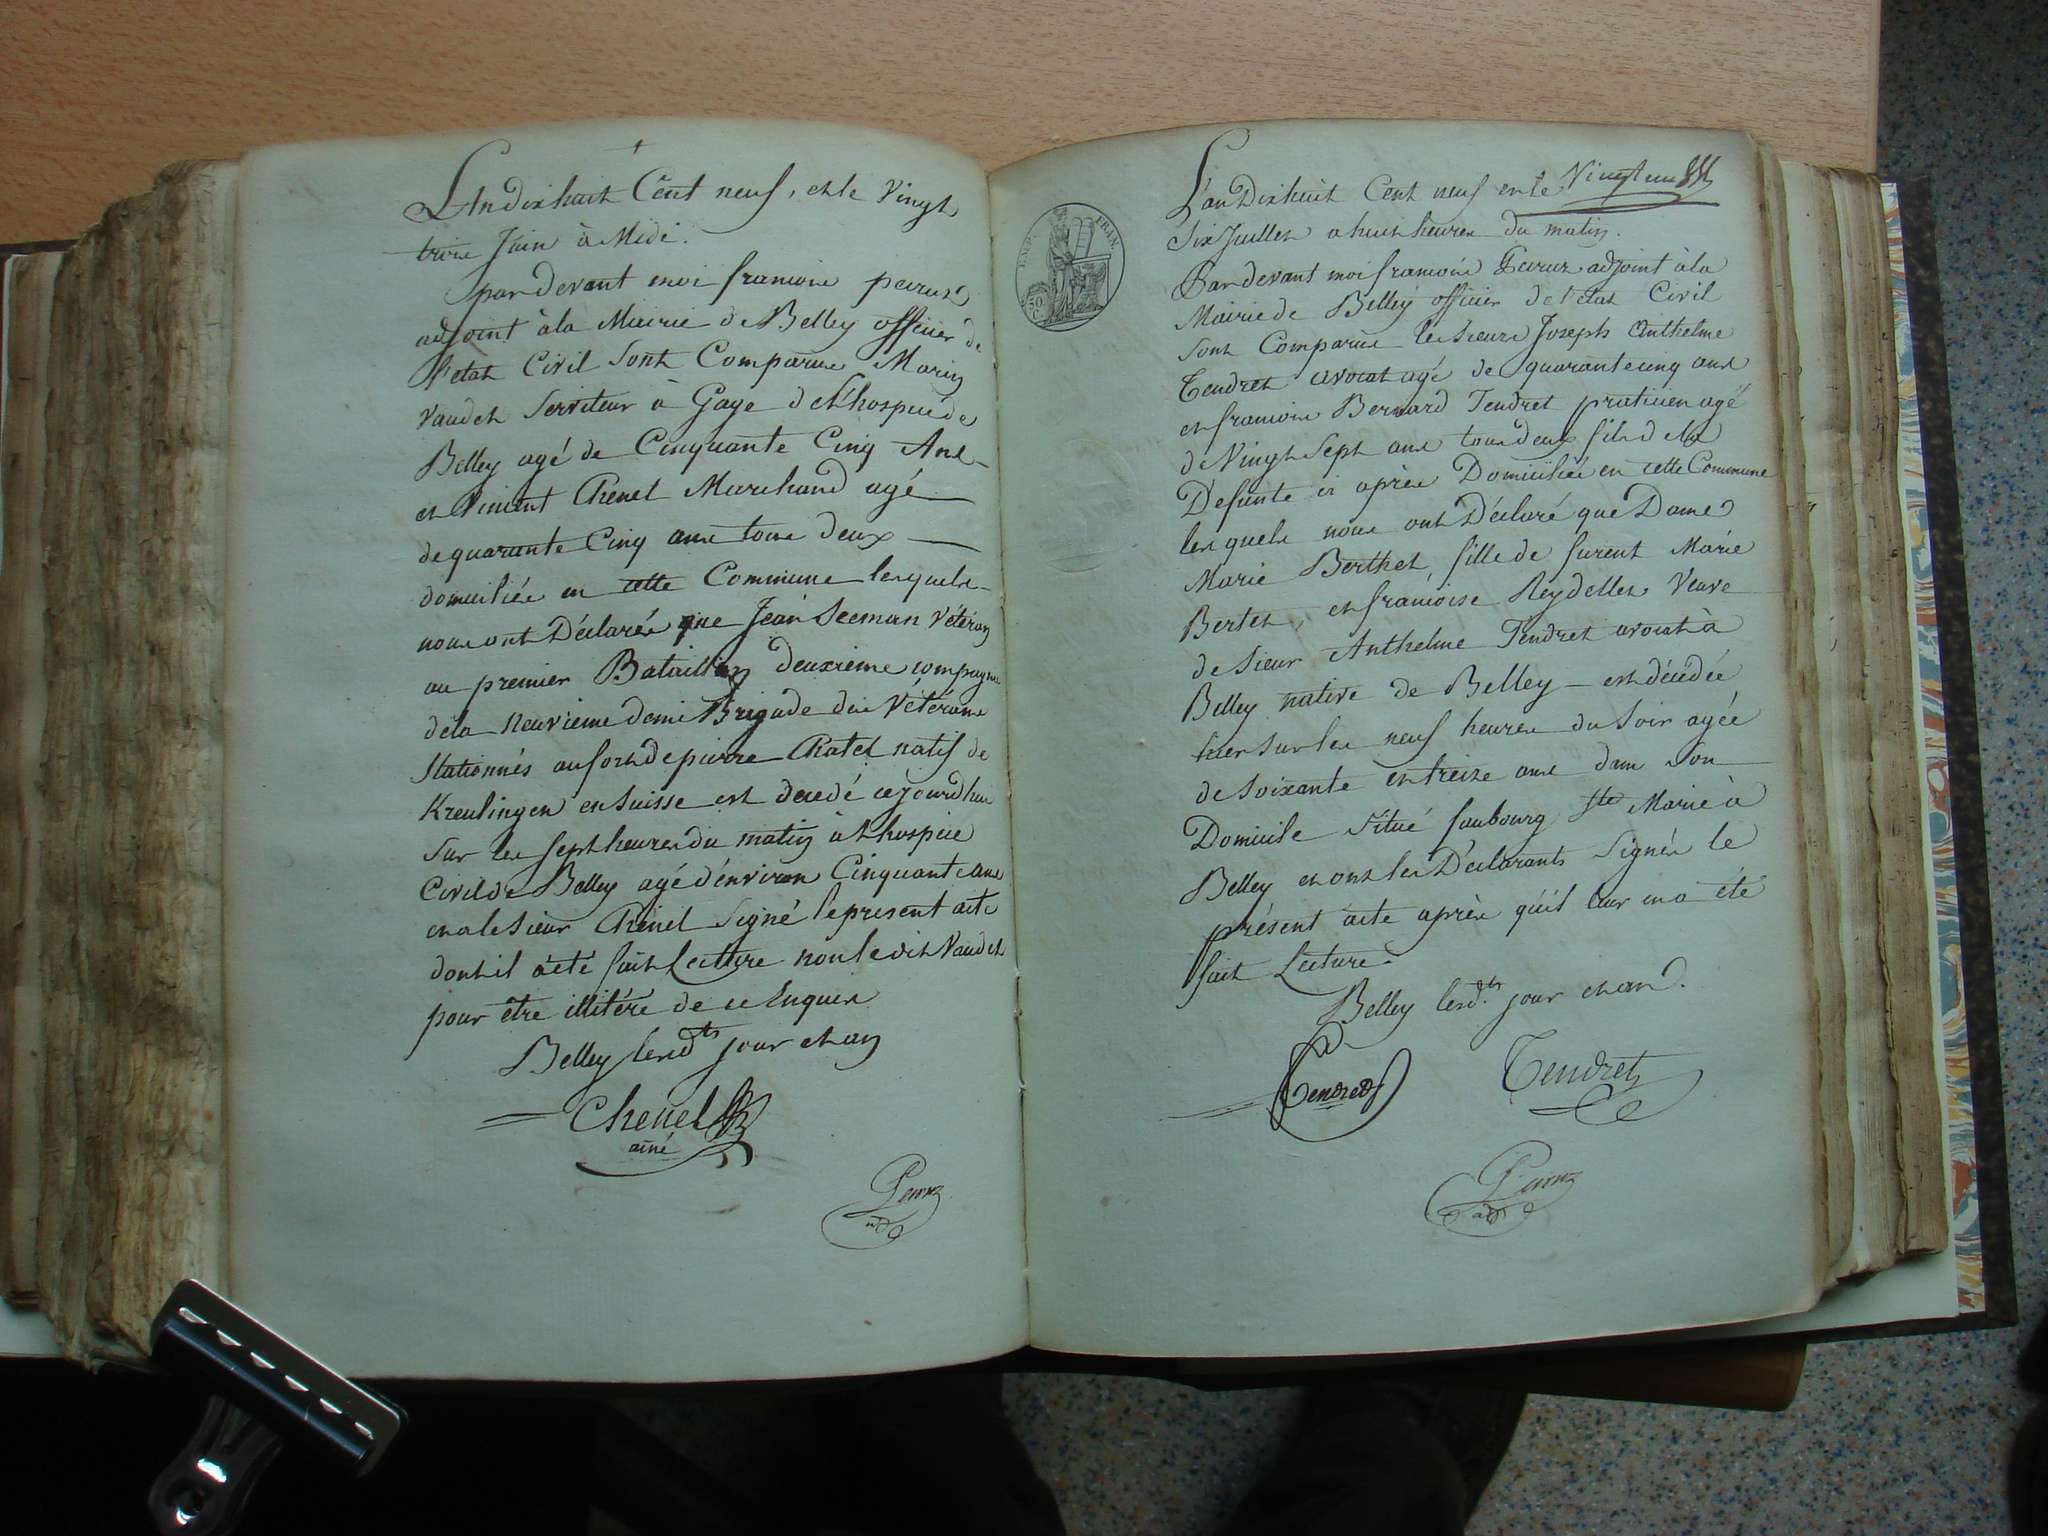 L'An dixhuit Cent neuf, et le Vingt
trois Juin à Midi.
pardevant moi francois peiruz
adjoint à la Mairie de Belley officier de
l'etat Civil sont Comparus Marin
Vaudet Serviteur à Gage de l'hospice de
Belley agé de Cinquante Cinq Ans
et Vincent Chenel Marchand agé
de quarante Cinq ans tous deux
domiciliés en cette Commune lesquels
nous ont Déclarés que Jean Seeman Vétéran
au premier Bataillon deuxieme compagnie
de la neuvieme demi Brigade des Vétérans
Stationnés au fort de pierre Chatel natif de
Kreulingen en Suisse est decedé cejourdhui
sur les sept heures du matin à Lhospice
Civil de Belley agé d'environ Cinquante ans
et a le Sieur Chenel Signé le present acte
dont il a été fait Lecture non ledit Vaudet
pour être illitéré de ce Enquis
Belley lesdts jour et an
Chenel
ainé
Peiruz
adj
Vingt un
L'an Dixhuit Cent neuf et le
Six Juillet a huit heures du matin.
Pardevant moi francois Peiruz adjoint à la
Mairie de Belley officier de l'etat Civil
sont Comparus les sieurs Joseph Anthelme
Tendret avocat agé de quarante cinq ans
et francois Bernard Tendret praticien agé
de Vingt Sept ans tous deux fils de la
Defunte ci après Domiciliés en cette Commune
lesquels nous ont Déclaré que Dame
Marie Berthet, fille de furent Marie
Bertet et francoise Reydellet Veuve
de Sieur Anthelme Tendret avocat à
Belley native de Belley est décédée
hier sur les neuf heures du Soir agée
de Soixante et treize ans dans Son
Domicile situé faubourg Ste Marie à
Belley et ont les Déclarants Signés le
présent acte après qu'il leur en a été
fait Lecture.
Belley lesdts jour et an.
Tendret
Tendret
Peiruz
adj
EMP. FRAN.
50 C.